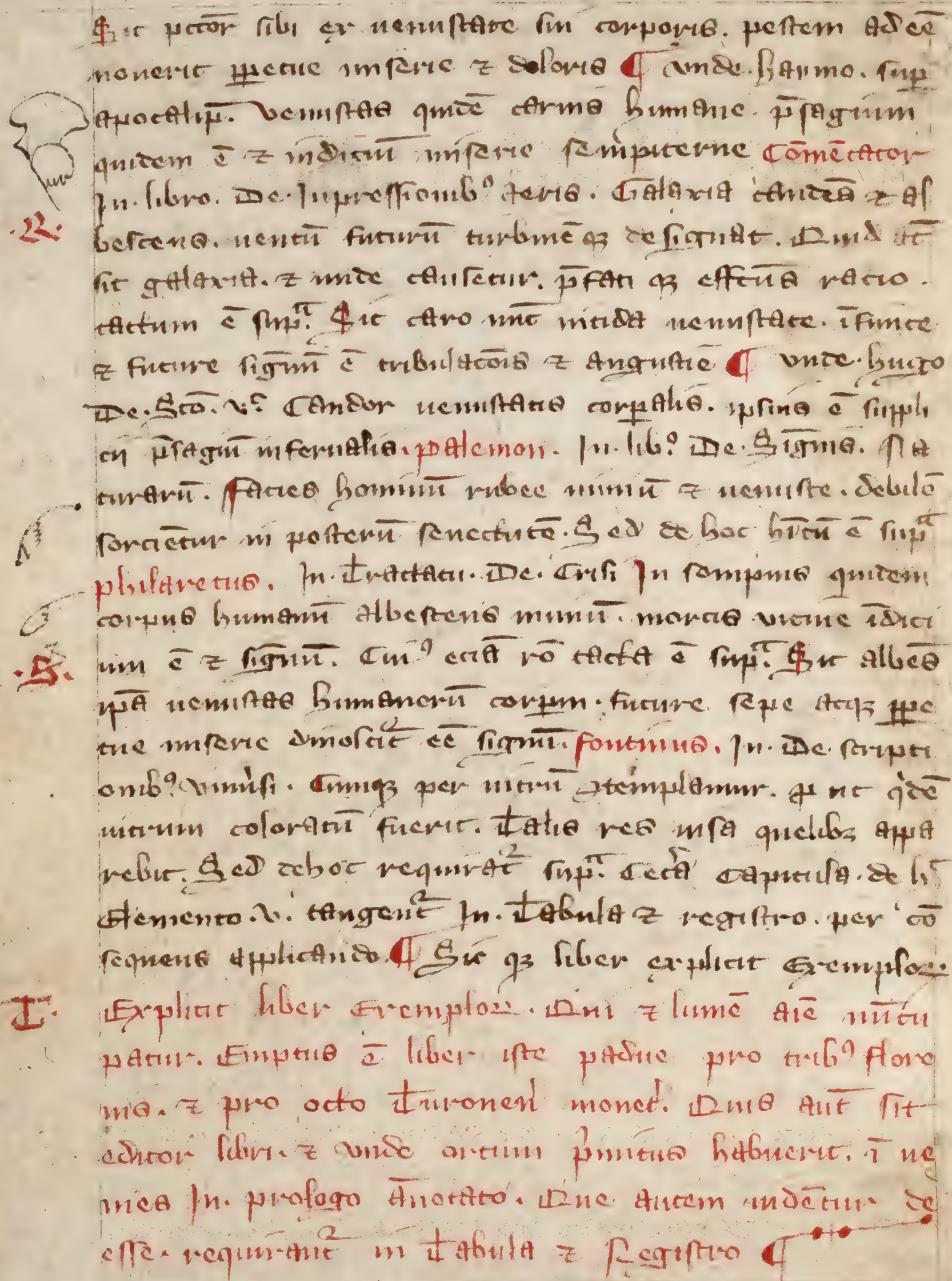 Sic pctōr sibi ex uenustate sui corporis. pestem adeē
nouerit ꝑpetue miserie ⁊ doloris ¶ vnde. haymo. suꝑ
apocalip̄. venustas quidē carnis humane. p̄sagium
quidem ē ⁊ indiciū miserie sempiterne Cōmētator
In. libro. De. Inpressionibꝰ aeris. Galaxia candēs ⁊ al
.R.
bescens. uentū futurū turbinēqꝫ designat. Quid at̄
sit galaxia. ⁊ unde causetur. p̄fati qꝫ effctus racio.
tactum ē sup̄ᵃ. Sic caro nūc nitida uenustate.
⁊ future signū ē tribulacōis ⁊ angustie ¶ vnde. hugo
De. Sctō. vᵉ. Candor uenustatis corꝑalis. ipsius ē suppli
cii p̄sagiū infernalis. palemon. In. libꝰ. De. Signis. Na
turarū. Facies hominū rubee nimiū ⁊ uenuste. debilē
sorciētur in posterū senectutē. Sed de hoc hītū ē sup̄ᵃ
philaretus. In. Tractatu. De. Crisi In sompnis quidem
corpus humanū albescens nimiū. mortis uicine īdici
.S.
um ē ⁊ signū. Cuiꝰ eciā rō tacta ē sup̄ᵃ. Sic albēs
ip̄a uenustas humanorū corꝑum. future sepe atqꝫ ꝑpe
tue miserie dinoscit᷑ eē signū. fontinus. In. De scripti
onibꝰ. vniuͥsi. Cumqꝫ per uitrū ꝯtēmplamur. ꝙ ut qͥdē
uitrum coloratū fuerit. Talis res uisa quelibꝫ appa
rebit. Sed dehoc requirat᷑ sup̄ᵃ. Cetͣa capitula. de hͥ
Elemento. v. tangent᷑ In. Tabula ⁊ registro. per cō
sequens applicando. ¶ Sic qꝫ liber explicit Exemploꝝ
.T.
Explicit liber Exemploꝝ. Qui ⁊ lumē aīe nūcu
patur. Emptus ē liber iste padue pro tribꝰ flore
nis. ⁊ pro octo Turonen̄ monet̄. Quis aut̄ sit
editor libri. ⁊ vnde ortum pͥmitus habuerit. ī ue
nies In. prologo ānotato. Que autem uidētur de
esse. requirant᷑ in Tabula ⁊ Registro ¶